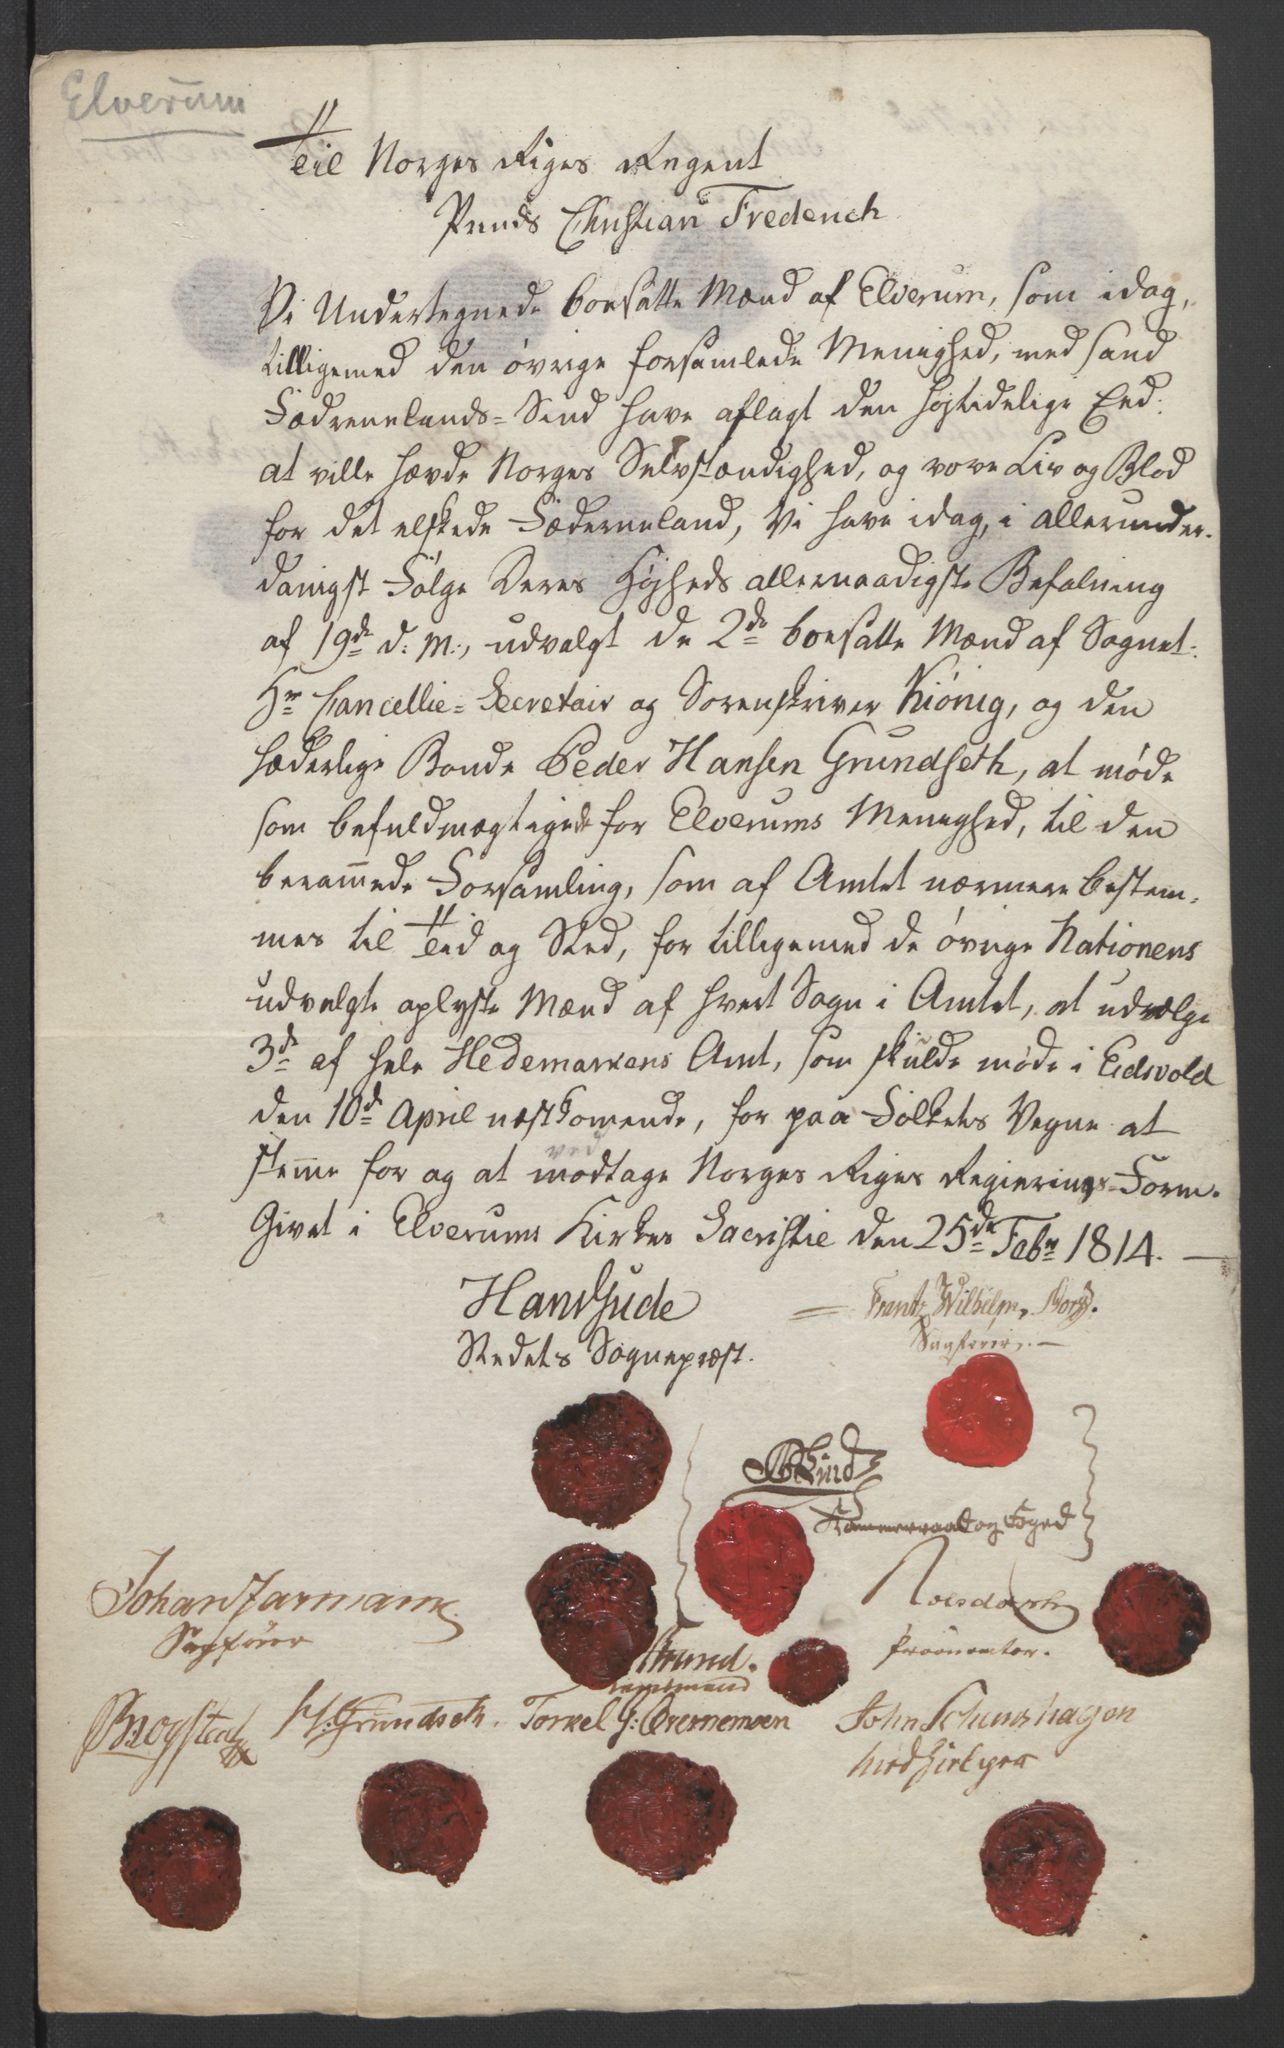 Elverum
Til Norges Riges Regent
Prinds Christian Frederich
Vi Undertegnede boesatte Mænd af Elverum, som idag,
tilligemed den øvrige forsamlede Menighed, med sand
Fædrenelands-Sind have aflagt den høitidelige Eed:
at ville hævde Norges Selvstændighed, og vove Liv og Blod
for det elskede Fæderneland, Vi have idag, i allerunder-
danigst Følge Deres Høyheds allernaadigste Befalning
af 19de d: M:, udvalgt de 2de boesatte Mænd af Sognet:
Hr Cancellie-Secretair og Sorenskriver Kiönig, og den
hæderlige Bonde Peder Hansen Grundseth, at møde
som befuldmægtigede for Elverums Menighed, til den
berammede Forsamling, som af Amtet nærmere bestem-
mes til Tid og Sted, for tilligemed de øvrige Nationens
udvalgte oplyste Mænd af hvert Sogn i Amtet, at udvælge
3de af hele Hedemarkens Amt, som skulde møde i Eidsvold
den 10de April næstkomende, for paa Folkets Vegne at
stemme for og at modtage Norges Riges Regierings-Form.
ved
Givet i Elverums Kirkes Sacristie den 25de Febr 1814.
Hans Jude
Stedets Sognepræst.
Frantz Wilhelm
Sagfører.
Kammerraad og Foged
Johan Jarmann
Sagfører
Procurator.
Strand.
Lensmand
H: Grundseth.
Torkel G: Grernemoen
John
med